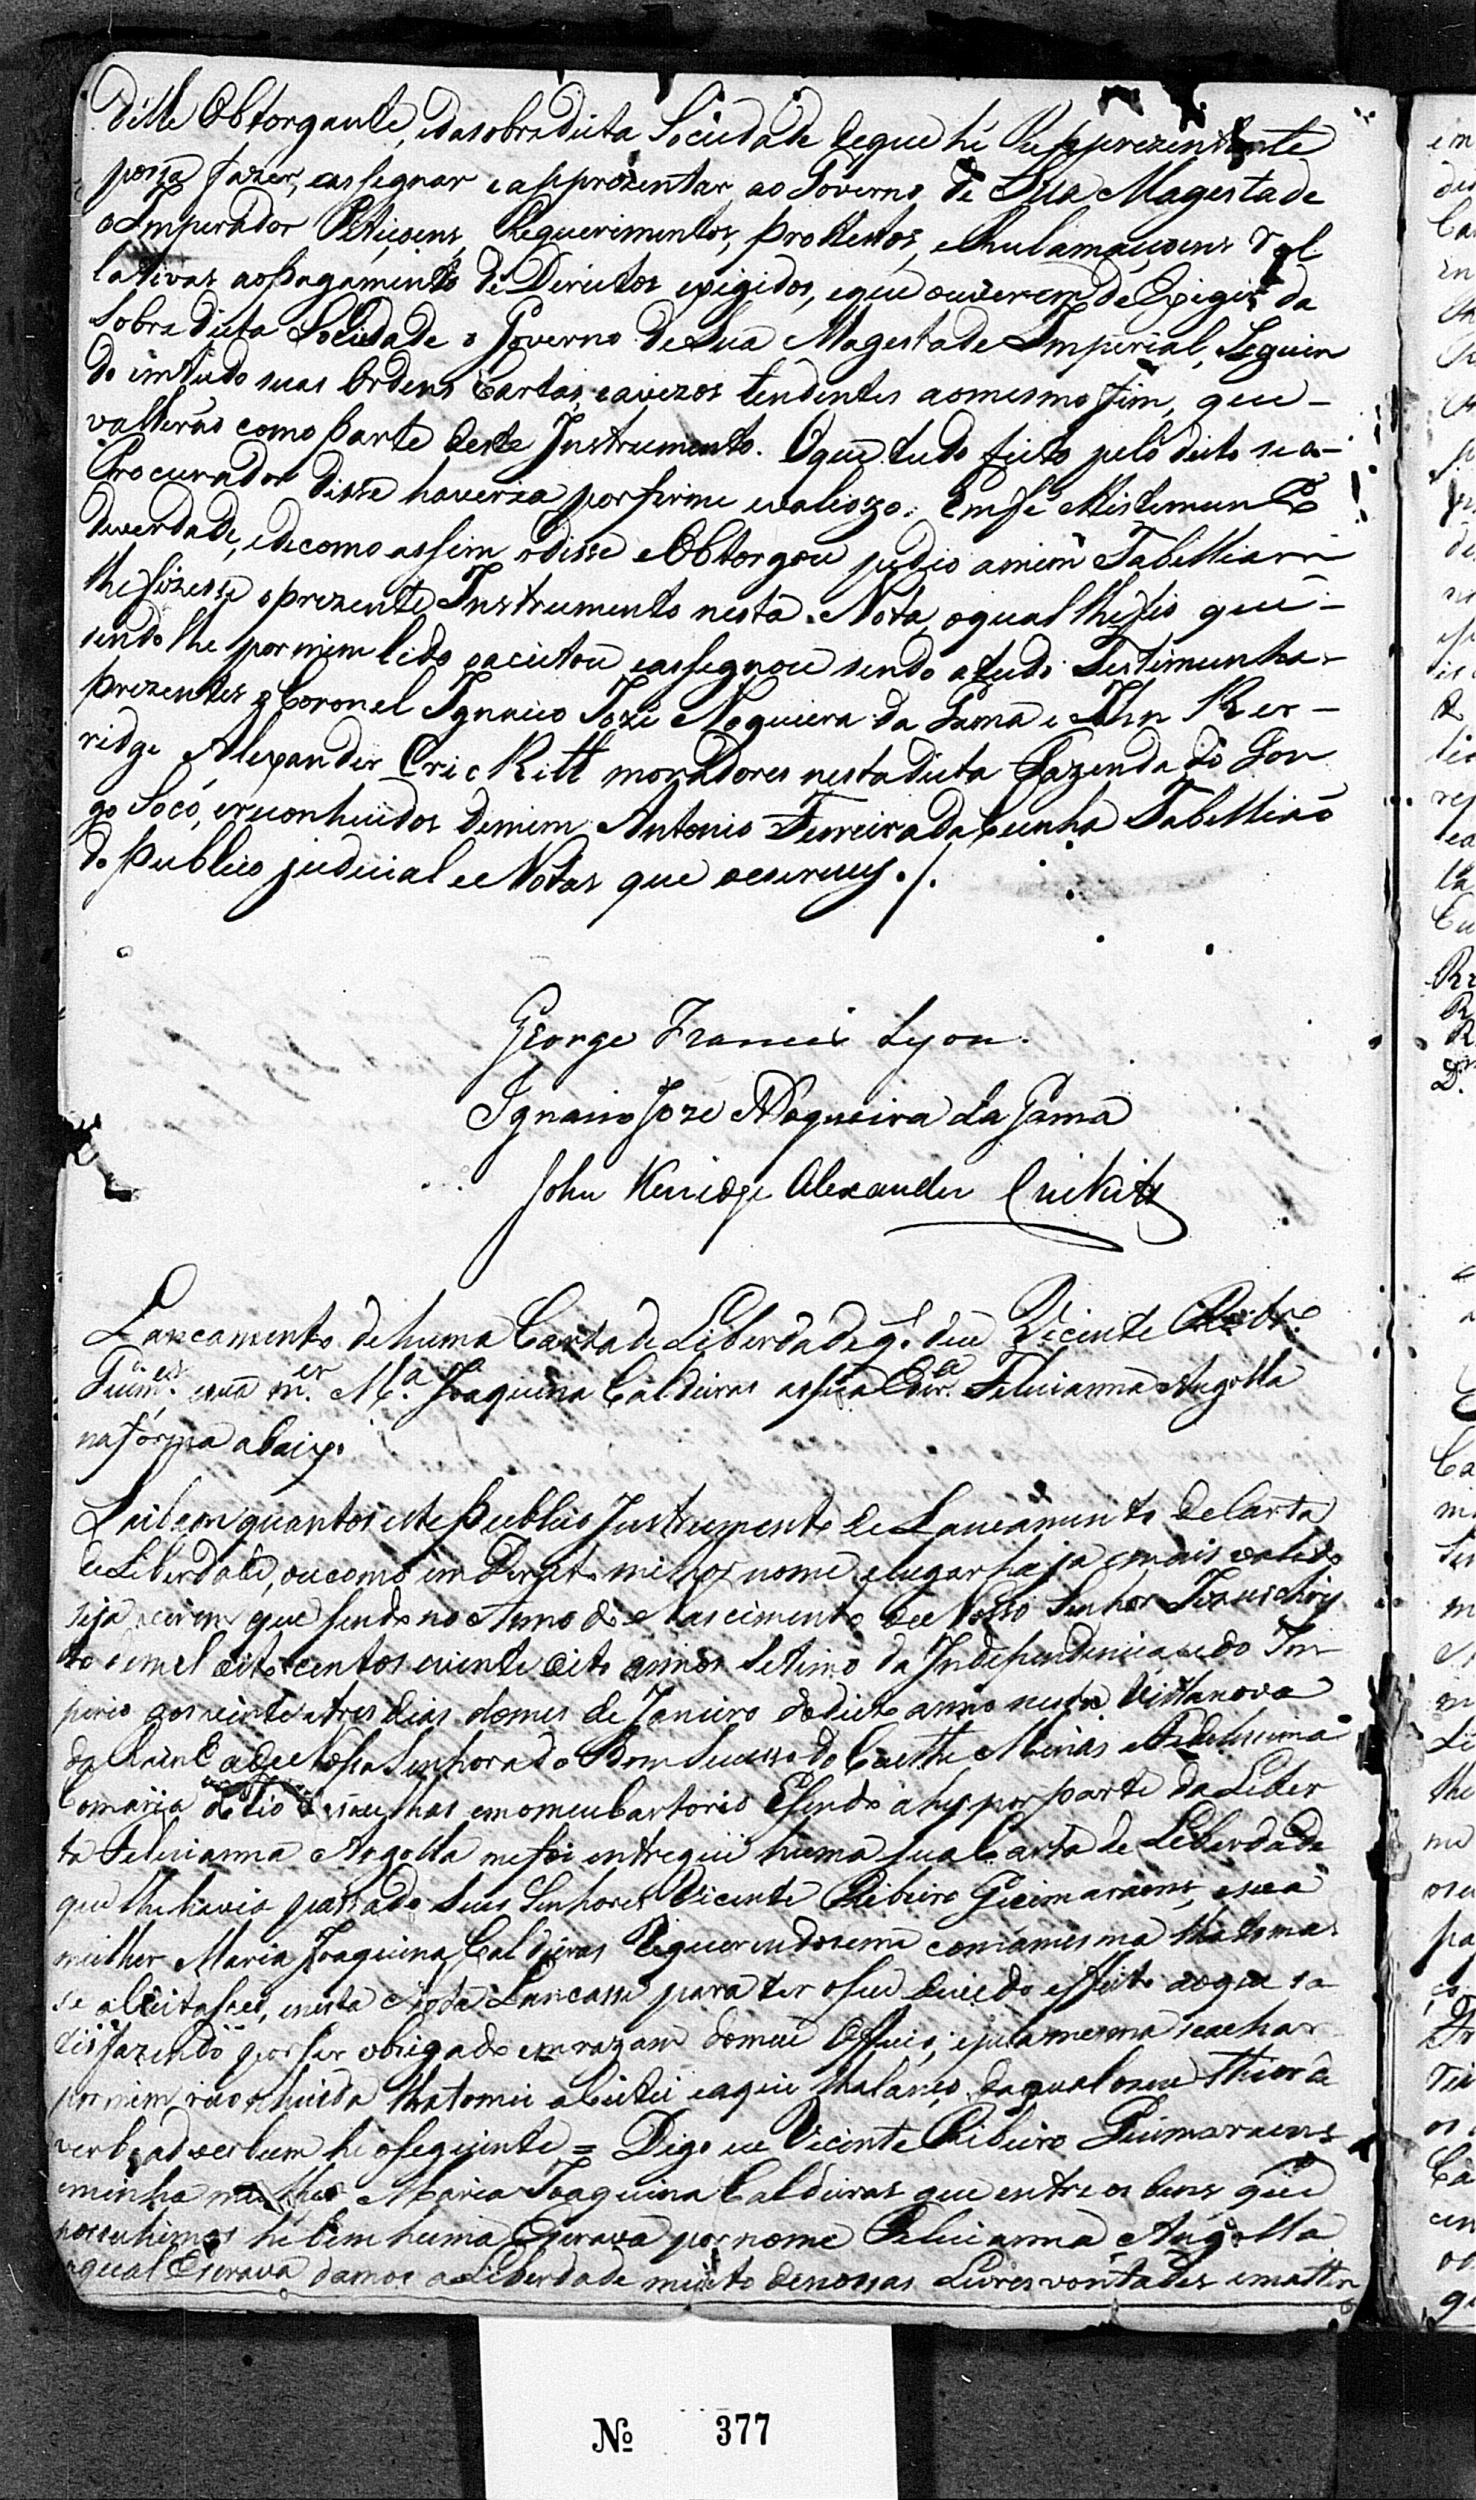 délle Obtorgante, edasobredicta Sociedade deque hé Repprezentante
possa fazer, eassegnar eapprezentar ao Governo de Sua Magestade
o Imperador Petiçoens, Requerimentos, Protestos, eReclamaçoens rel
lativas aopagamento de Direitos exigidos, eque ouverem de Exigir da
Sobre dicta Sociedade o Governo de Sua Magestade Imperial, Seguin
do emtudo suas Ordens Cartas, eavizos tendentes aomesmo fim, que-
valleráo como parte deste Instrumento. Oque tudo feito pelo dicto seo-
Procurador disse haveria porfirme evaliozo. Emfé eTestemunho
deverdade, edecomo assim odisse eObtorgou pedio amim Tabelliam
lhefizesse oprezente Instrumento nesta Nota, oqual lhefis que-
sendolhe pormim lido oaceitou eassegnou sendo atudo Testimunhas
prezentes o Coronel Ignacio Jozé Nogueira da Gama e Jhn Ker-
ridge Alexander CricKitt moradores nestadicta Fazenda do Gon
go Socó, ereconhecidos demim Antonio Ferreira da Cunha Tabellião
do publico judicial e Notas que oescrevy./.
George Francis Lyon.
Ignacio Joze Nogueira da Gama
John Kerridge Alexander Crickitt
Lancamento dehuma Carta de Liberdade q.e deu Vicente Ribr.o
Guim.es esua m.er M.a Joaquina Caldeiras assua Escr.a Felicianna Angolla
na fórma abaixo
Saibam quantos este publico Instrumento de Lancamento de Carta
de Liberdade, oucomo em Direito milhor nome elugar haja emais valido
seja virem que sendo no Anno do Nascimento de Nosso Senhor Jezus chris
to demil oito centos evinte oito annos Setimo da Independencia edo Im
perio aos vinte etres dias domes de Janeiro dodicto anno nesta Villa nova
da Rainha de Nossa Senhora do Bom Sucesso do Caethe Minas eFidelissima
Comarca do Rio das velhas em omeu Cartorio Esendo ahy por parte da Liber
ta Felicianna Angolla mefoi entregue huma sua Carta de Liberdade
que lhe havia passado seus Senhores Vicente Ribeiro Guimaraens, esua
mulher Maria Joaquina Caldeiras Requerendoseme comamesma lhatoma
se aceitasse, enesta Nota Lancasse para ter oseu devido effeito aoque sa
tisfazendo porser obrigado emrazam domeu Officio, epelamesma seachar
por mim reconhecida lhatomei aceitei eaqui halanço, daqual oseu theor de
verbo adverbum he oseguinte = Digo eu Vicente Ribeiro Guimaraens
eminha mulher Maria Joaquina Caldeiras que entre os bens que
possuhimos hé bem huma Escrava por nome Felicianna Angolla
aqual Escrava damos a Liberdade muito denossas Livres vontades ematten
Nº 377